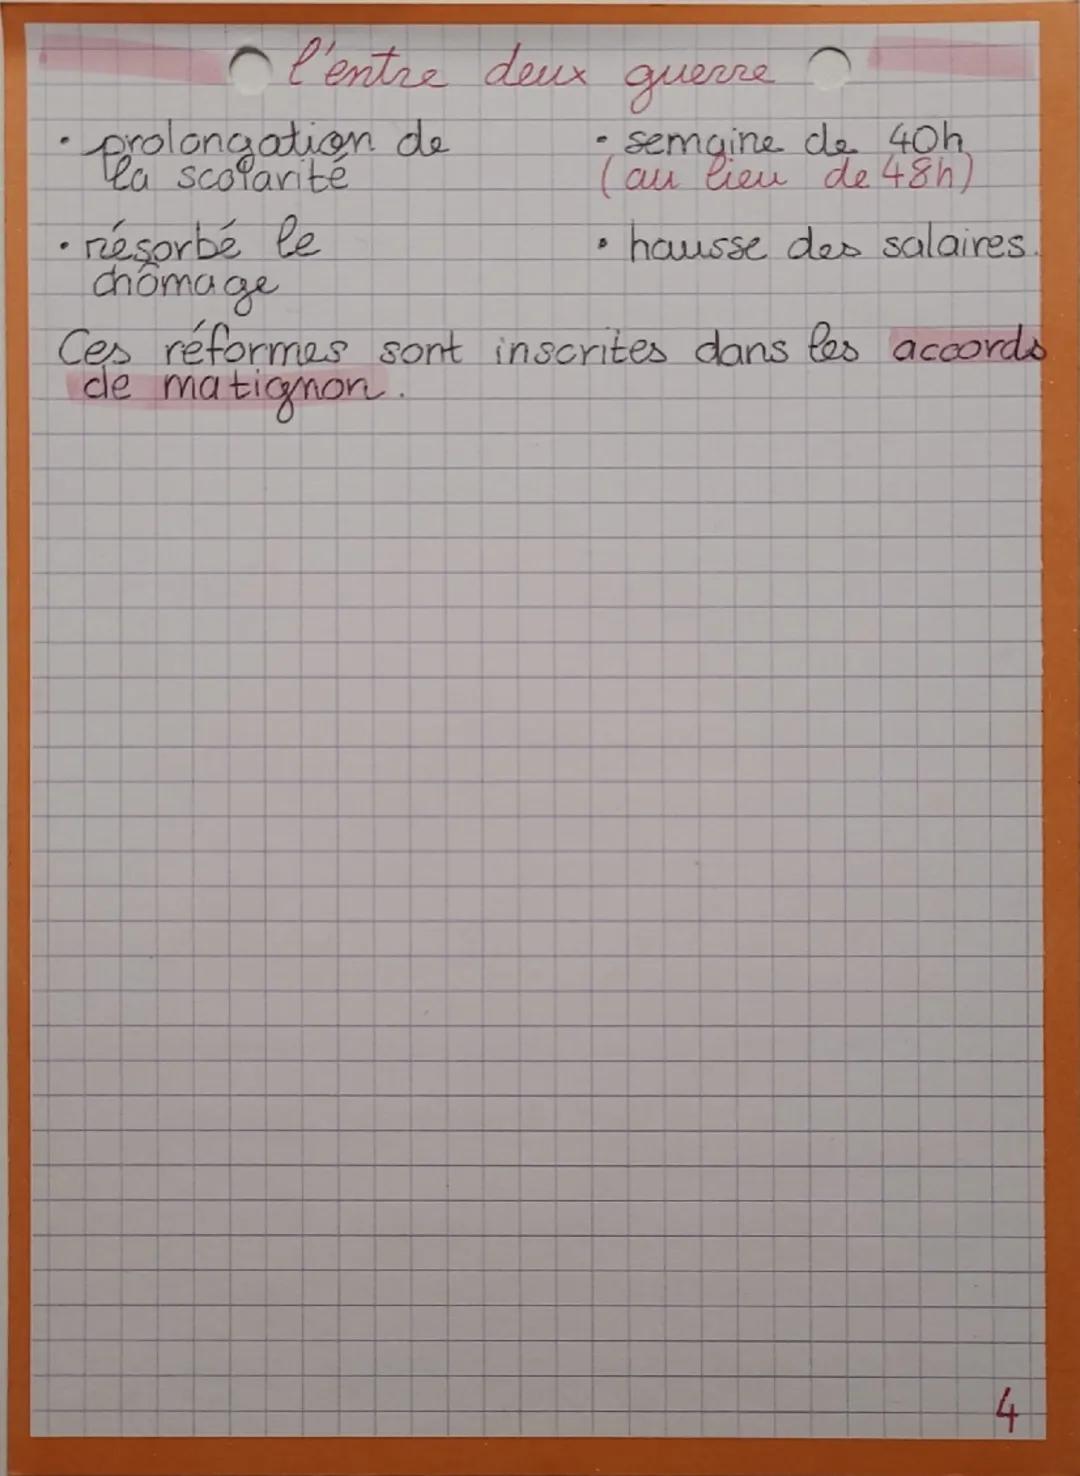 l'entre deux guerre
• prolongation de
la scolarité
• semaine de 40h
(au lieu de 48h)
• résorbé le
chômage
• hausse des salaires.
Ces réformes sont inscrites dans les accords
de matignon.
4